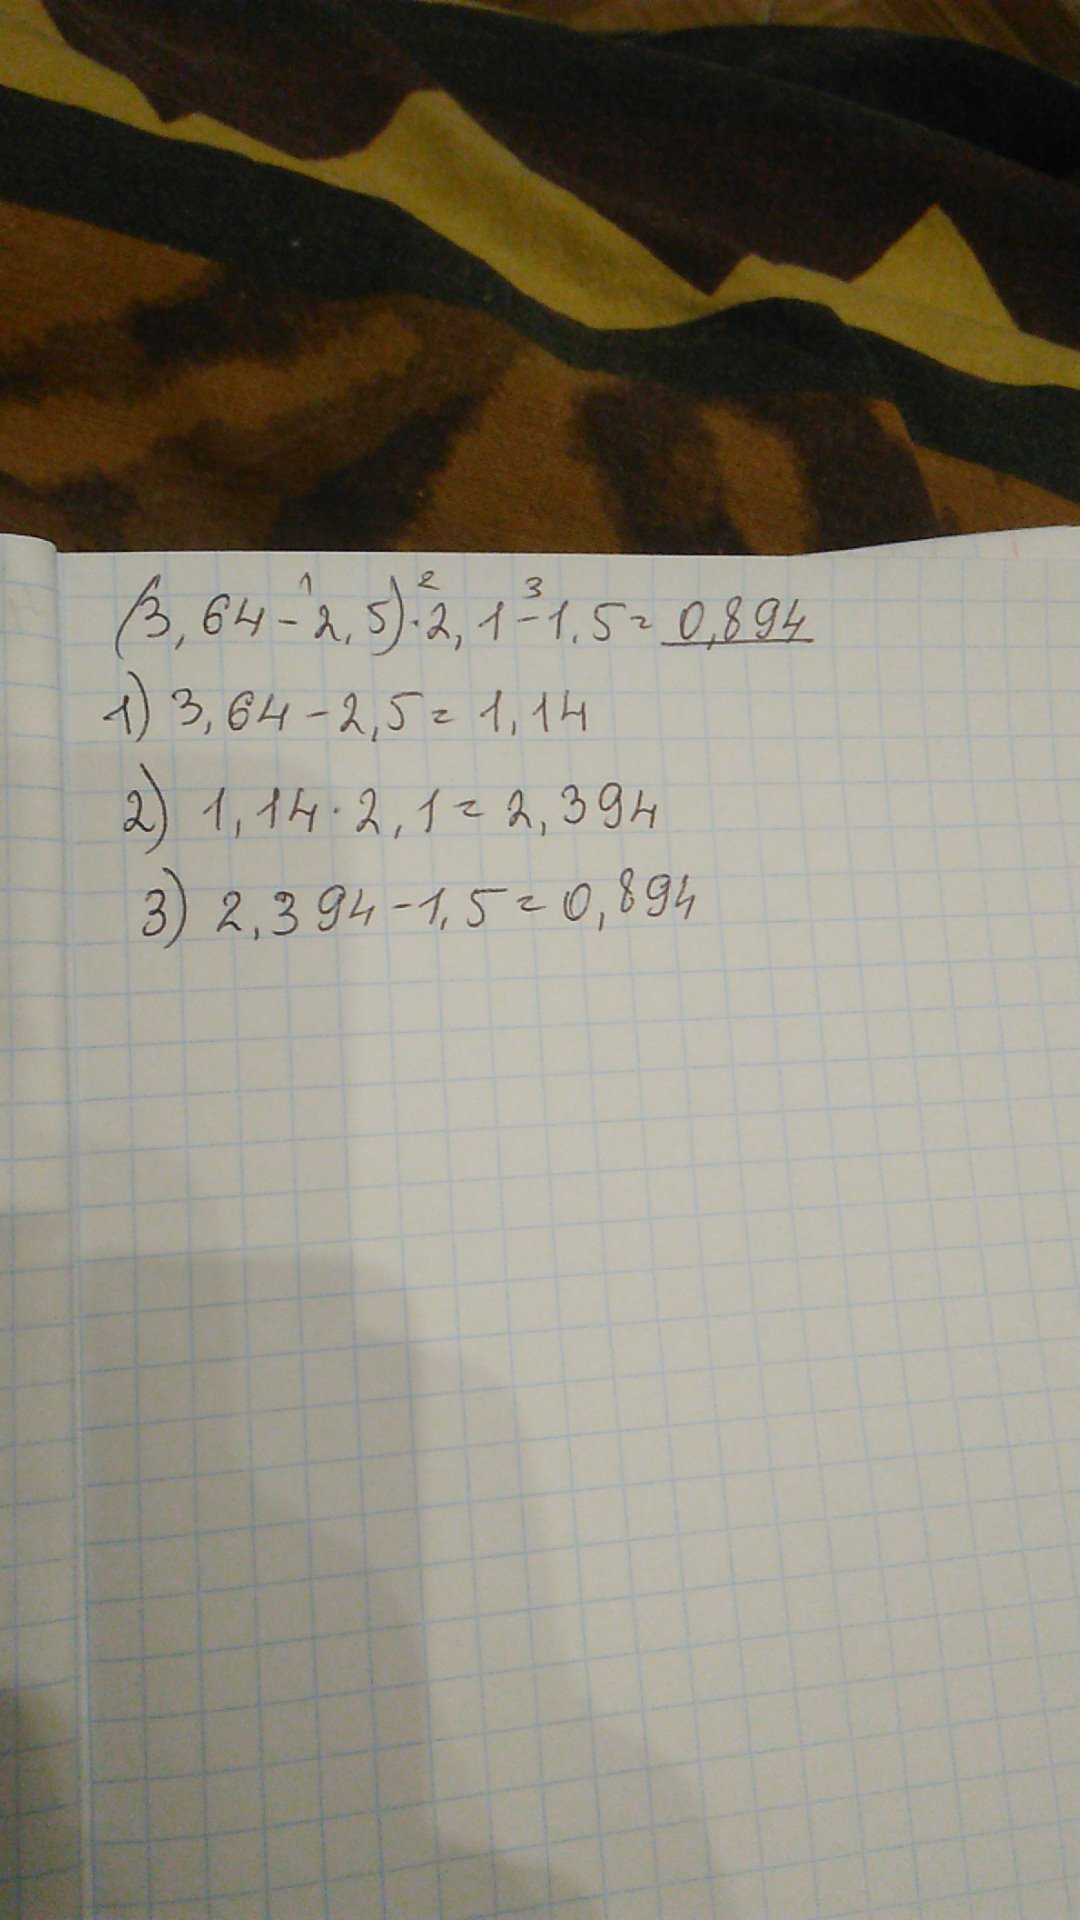 (3,64-2,5)·2,1-1,5=0,894
1) 3,64-2,5=1,14
2) 1,14·2,1=2,394
3) 2,394-1,5=0,894